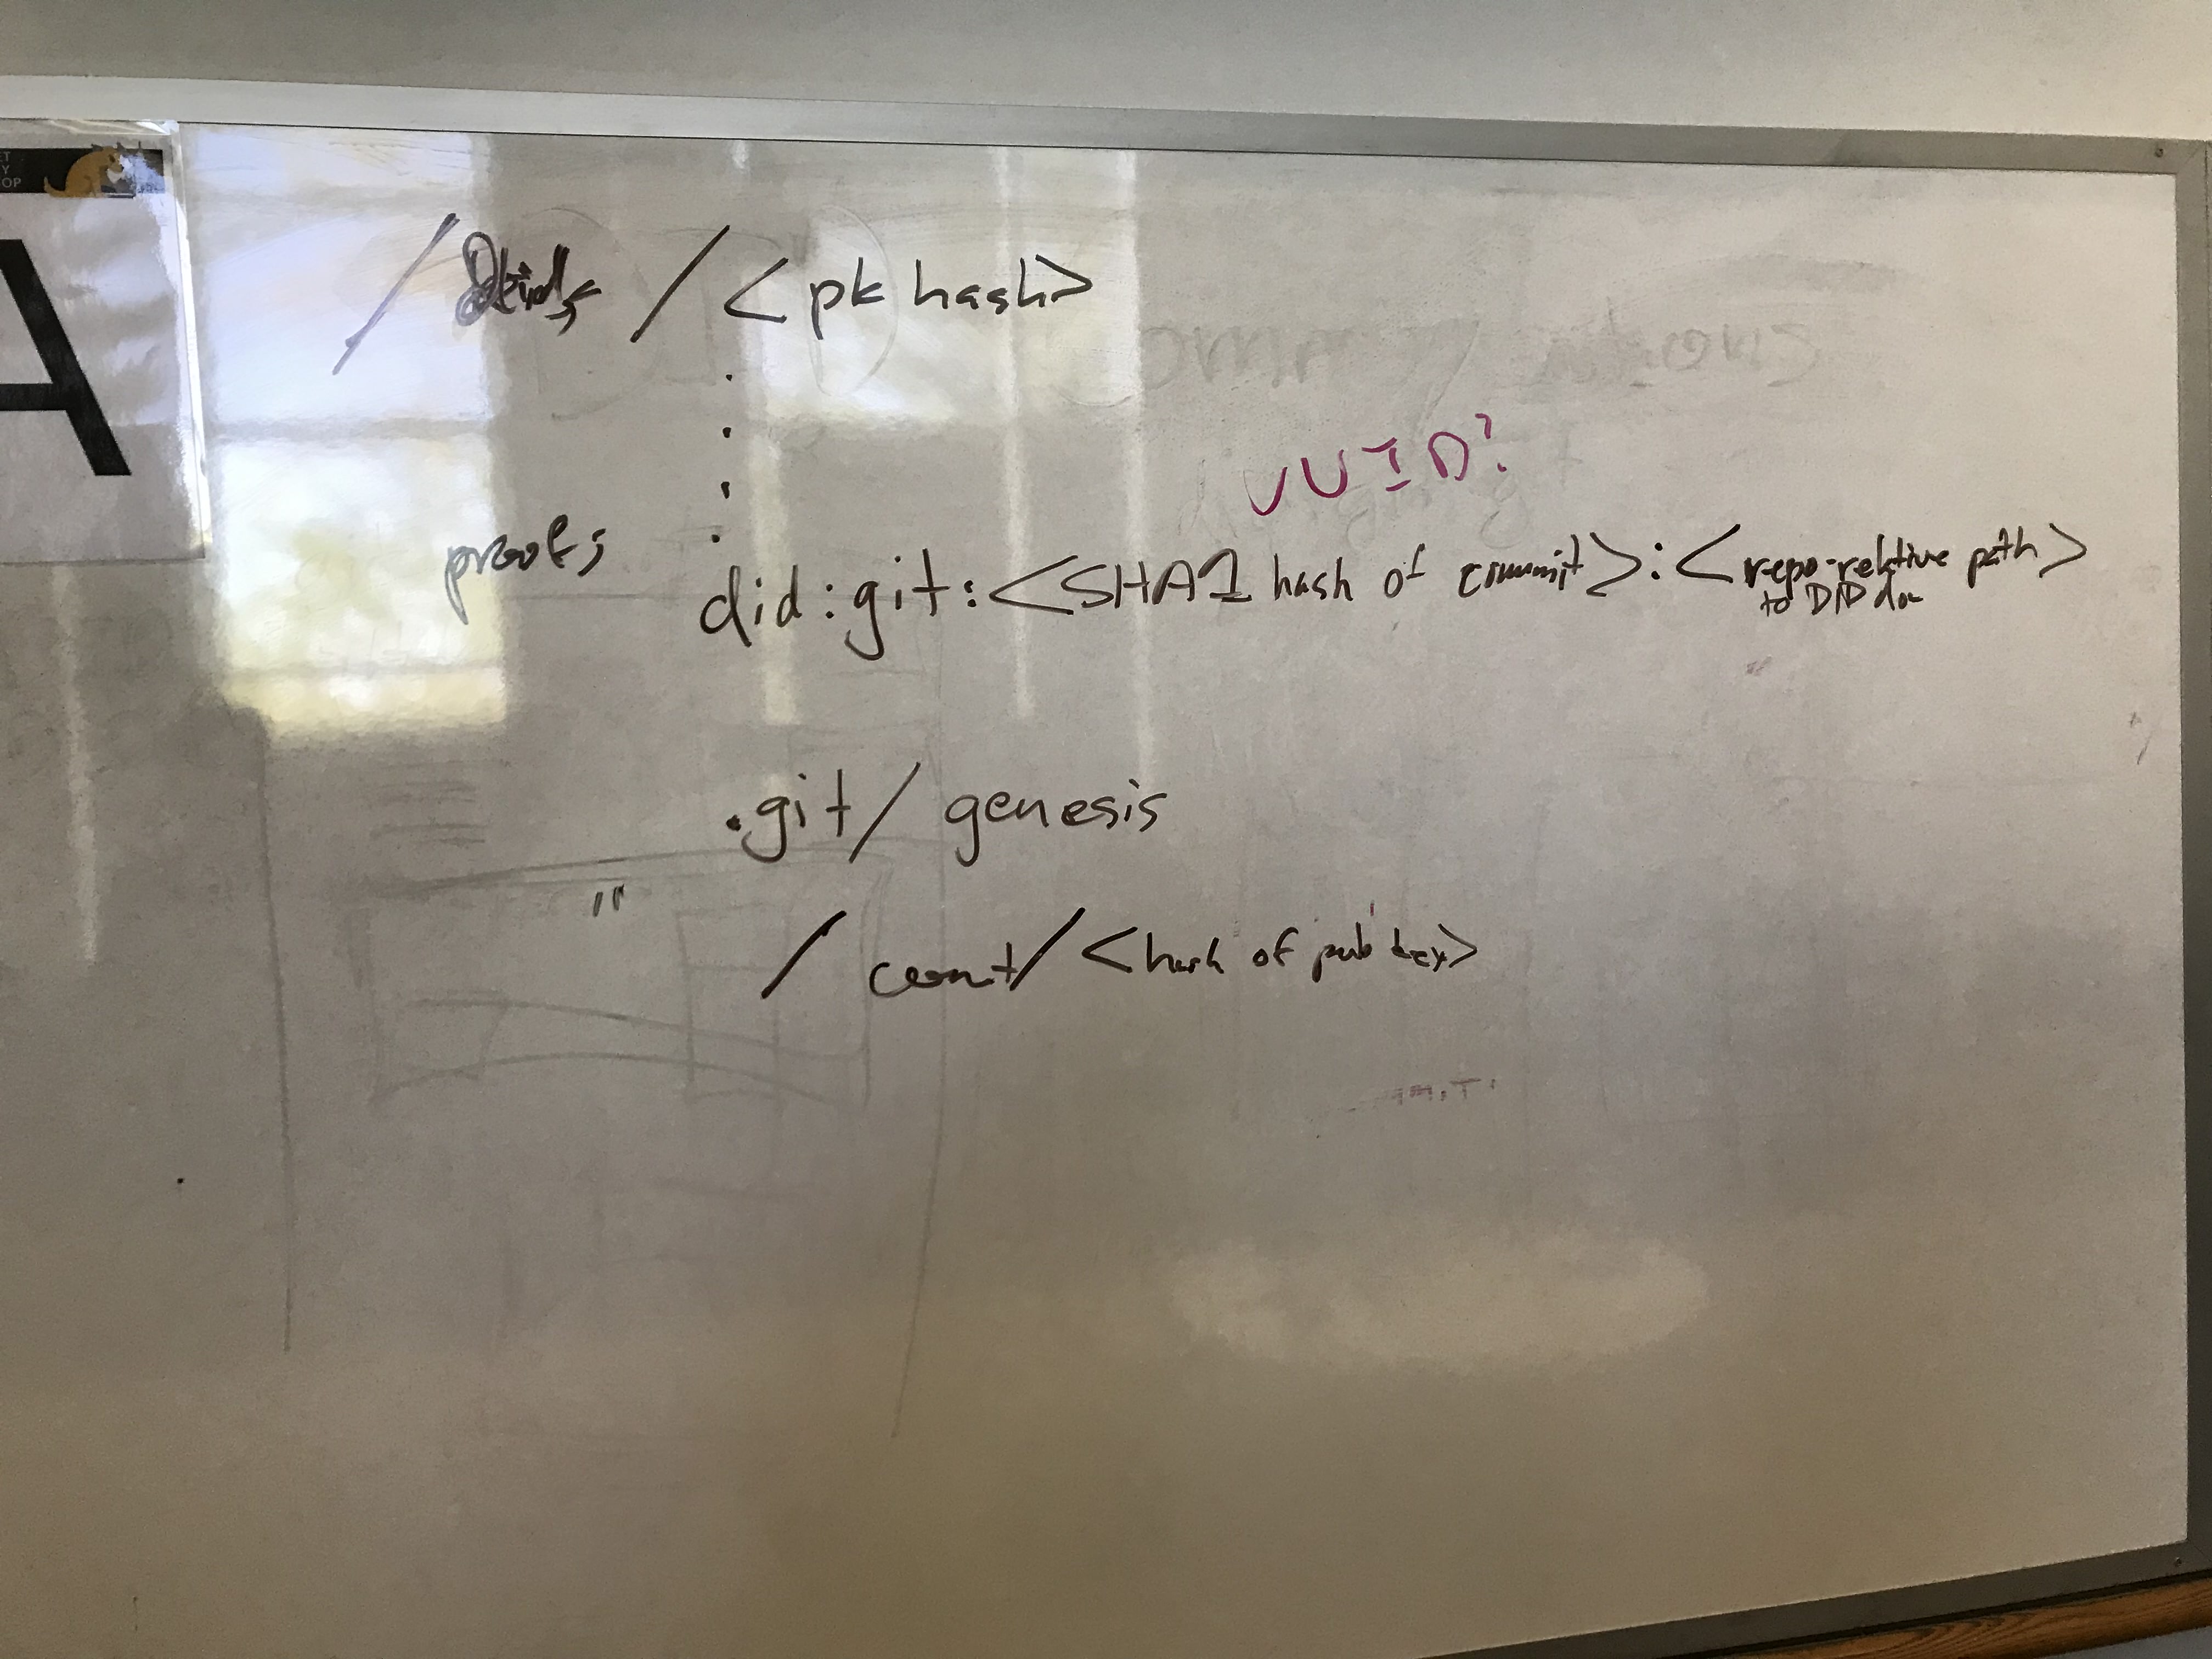 A
/ dids / <pk hash>
UUID?
proofs
did:git:<SHA1 hash of commit>:<repo-relative path>
to DID doc
.git/ genesis
"
/ / <hash of pub key>